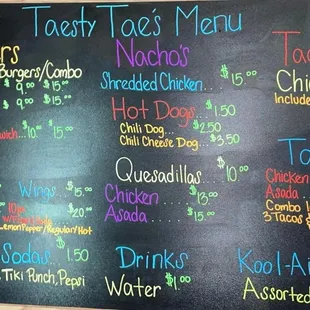 Taesty Tae's Menu
rs
Burgers/Combo
$9.00 $15.00
$9.00 $15.00
wich...10.00 $15.00
Wings $15.00
10pc $20.00
Lemon Pepper/Regular/Hot
Sodas $1.50
Tiki Punch, Pepsi
Nacho's
Shredded Chicken... $15.00
Hot Dogs...$1.50
Chili Dog... $2.50
Chili Cheese Dog...$3.50
Quesadillas...$10.00
Chicken... $13.00
Asada... $15.00
Drinks
Water $1.00
Ta
Chi
Include
Ta
Chicken
Asada
Combo
3 Tacos
Kool-Ai
Assorted